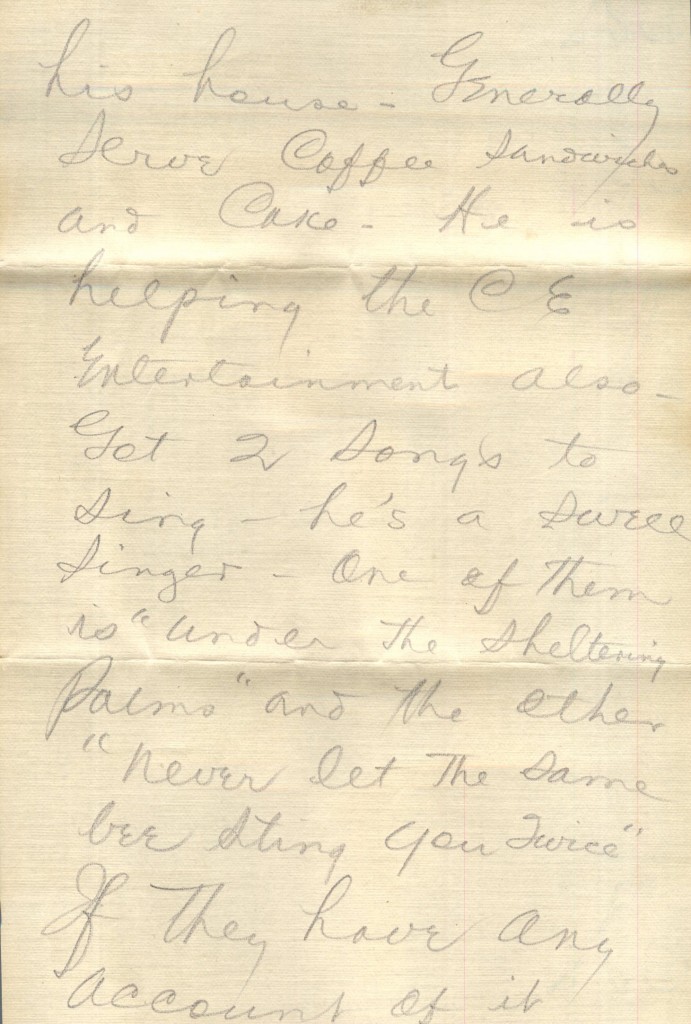 his house - Generally
Serve Coffee Sandwiches
and Cake - He is
helping the C E
Entertainment also -
Got 2 Songs to
Sing - he's a swell
Singer - One of them
is "under the sheltering
Palms" and the other
"Never let the same
bee sting you twice"
If they have any
account of it